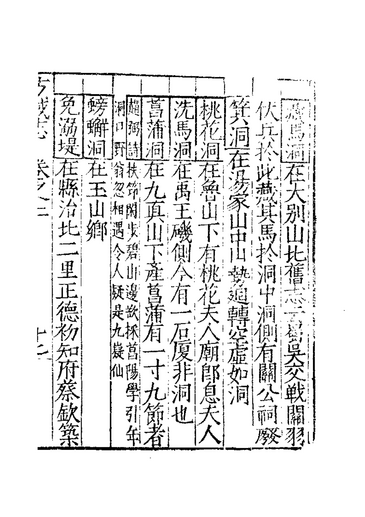 藏馬洞在大別山北舊志云蜀吳交戰關羽
伏兵於此藏其馬於洞中洞側有關公祠廢
箕洞在湯家山中山勢迴轉空虛如洞
桃花洞在魯山下有桃花夫人廟卽息夫人
洗馬洞在禹王磯側今有一石厦非洞也
菖蒲洞在九真山下產菖蒲有一寸九節者
詩扶筇閑步碧山邊欲採菖陽學引年
洞口野翁忽相遇令人疑是九嶷仙
螃蠏洞在玉山鄉
免溺堤在縣治北二里正德初知府蔡欽築
志 卷之二 十七